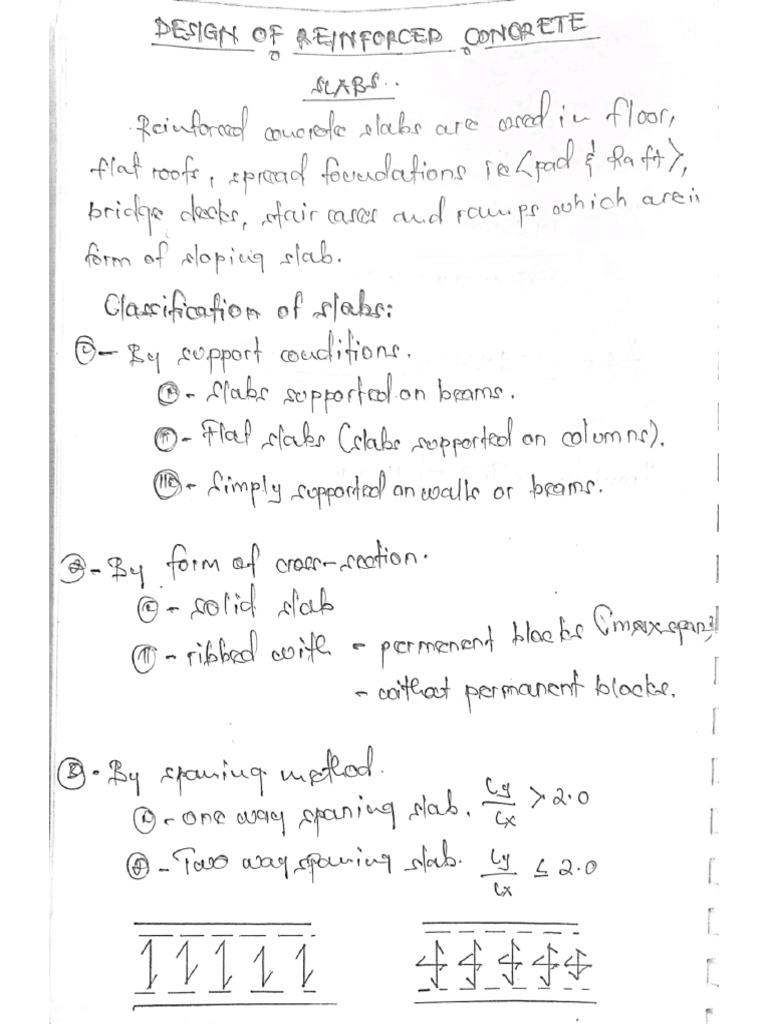 DESIGN OF REINFORCED CONCRETE
SLABS..
Reinforced concrete slabs are used in floor,
flat roofs, spread foundations ie <pad & Raft>,
bridge decks, stair cases and ramps which are in
form of sloping slab.
Classification of slabs:
- By support conditions.
- Slabs supported on beams.
- Flat slabs (slabs supported on columns).
- Simply supported on walls or beams.
- By form of cross-section.
- solid slab
- ribbed with - permenent blocks (max span
- without permanent blocks.
- By spaning method.
- one way spaning slab. Ly/Lx > 2.0
- Two way spaning slab. Ly/Lx ≤ 2.0